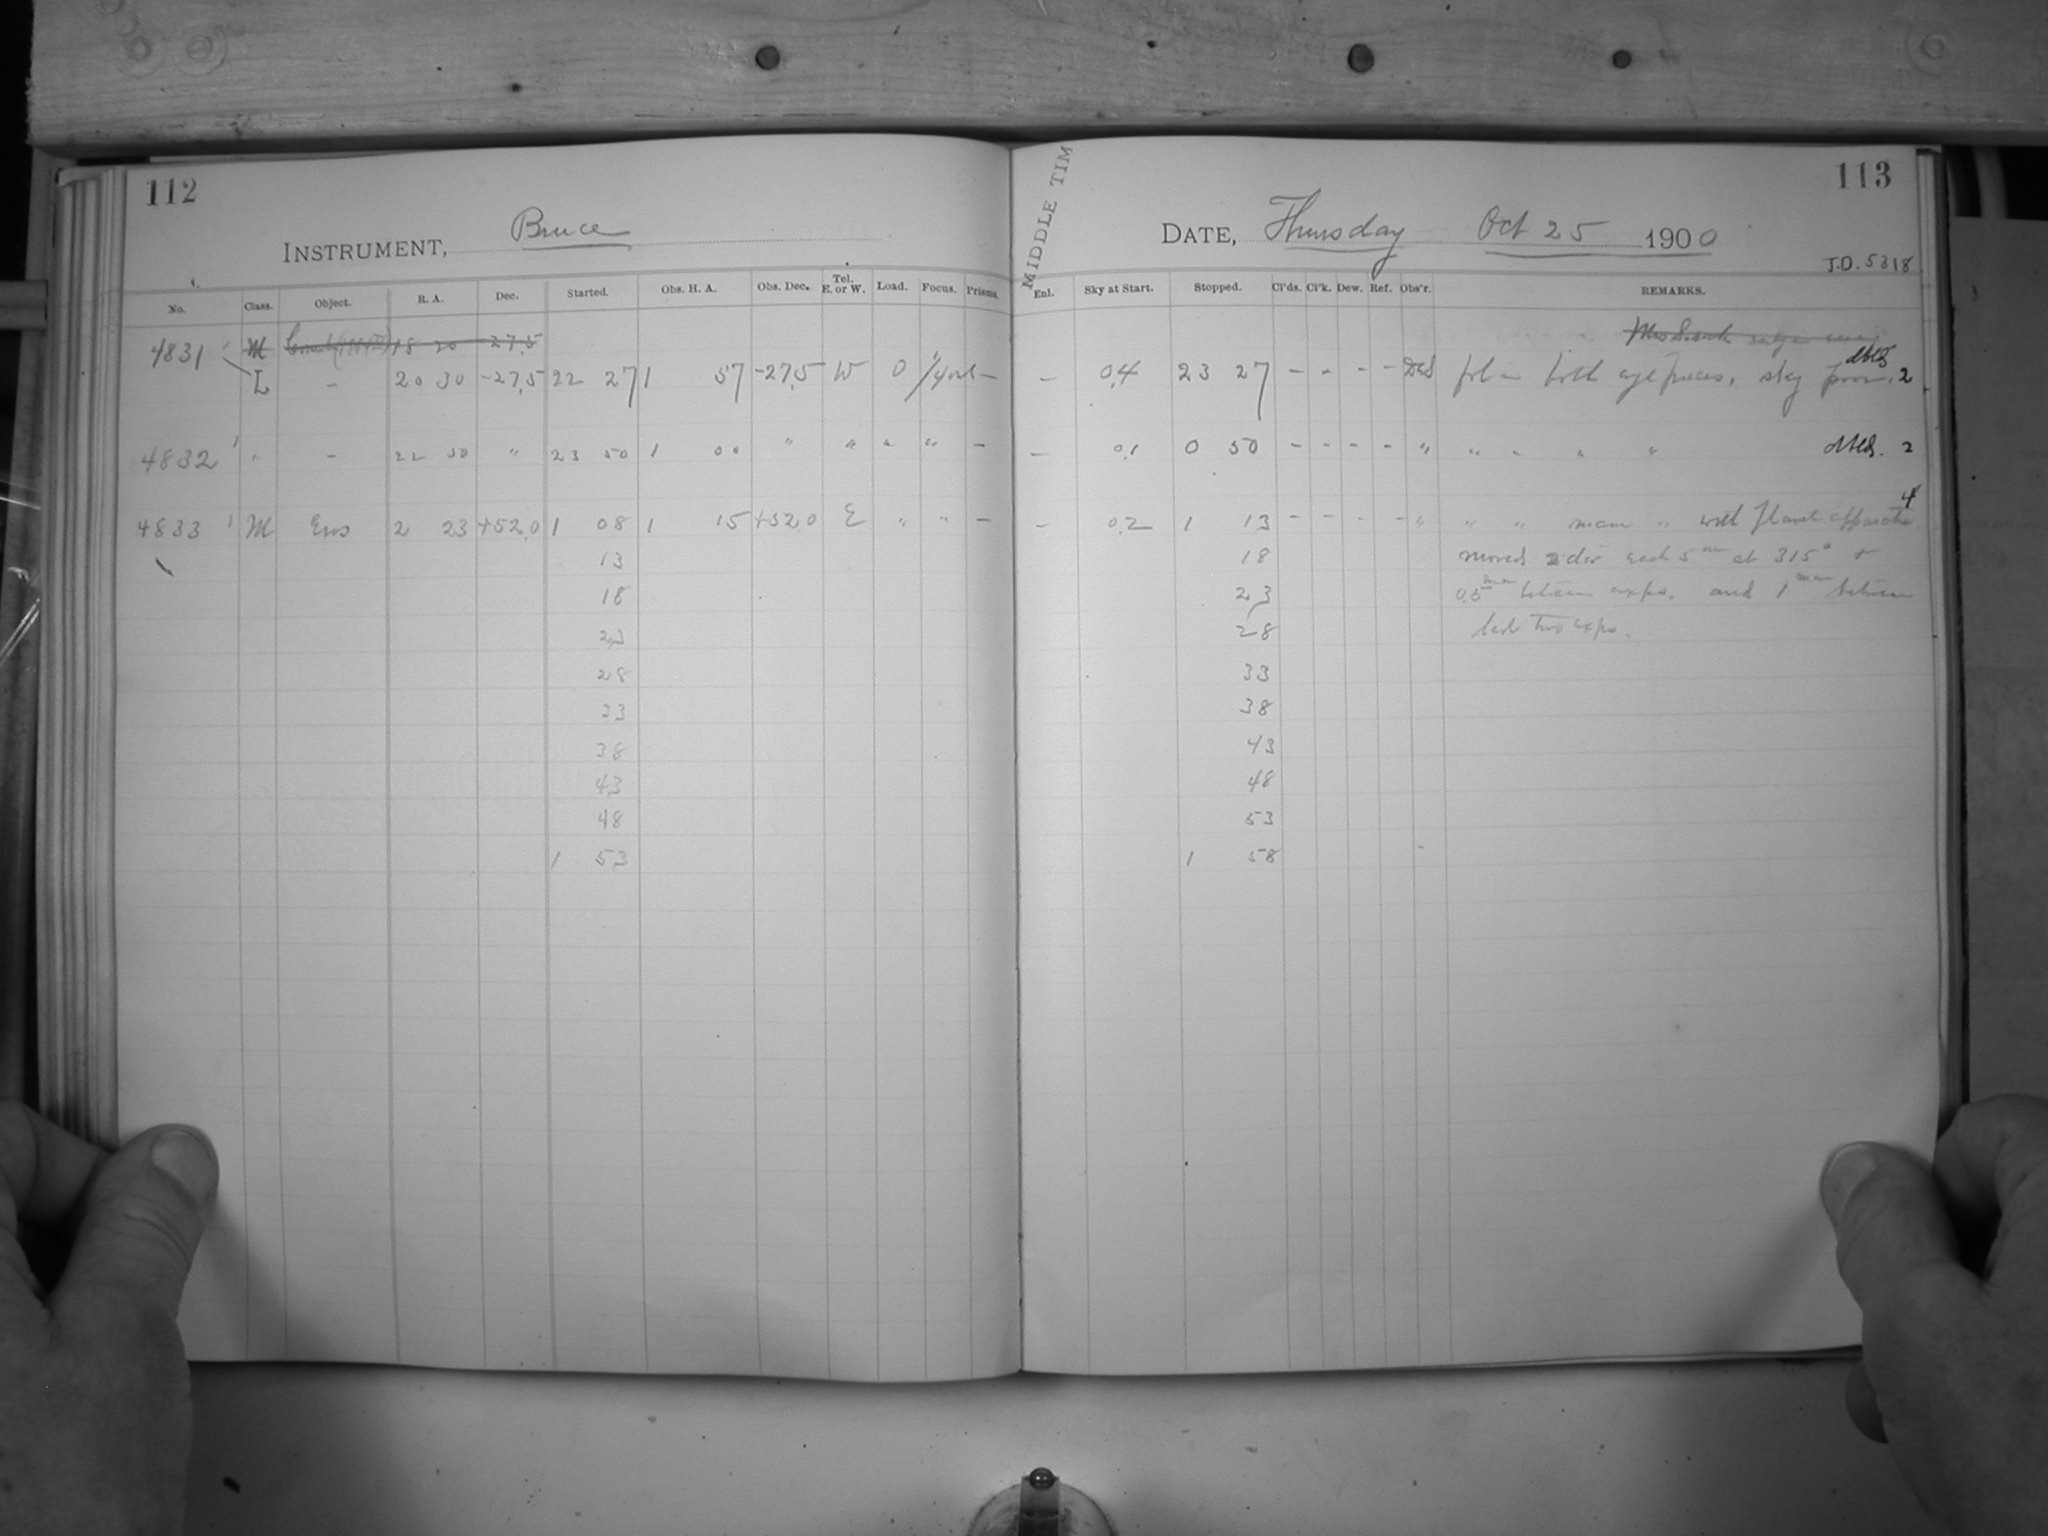 112
INSTRUMENT, Bruce
No. Class. Object. R. A. Dec. Started. Obs. H. A. Obs. Dec. Tel. E. or W. Load. Focus. Prisms.
4831 M 18 20 -27,5
L - 20 30 -27,5 22 27 1 57 -27,5 W 0 -
4832 " - 22 30 " 23 50 1 00 " " " " -
4833 M Eros 2 23 +52,0 1 08 1 15 +52,0 E " " -
13
18
23
28
33
38
43
48
1 53
MIDDLE TIM
113
DATE, Thursday Oct 25 1900
J.D. 5318
Enl. Sky at Start. Stopped. Cl'ds. Cl'k. Dew. Ref. Obs'r. REMARKS.
- 0,4 23 27 - - - - fol in both eyepieces, sky poor. 2
- 0,1 0 50 - - - - " " " " " 2
- 0,2 1 13 - - - - " " " " with planet apparatus 4
18 moved 2 div each 5 m at 315° +
23 0,5 between exps. and 1 between
28 last two exps.
33
38
43
48
53
1 58